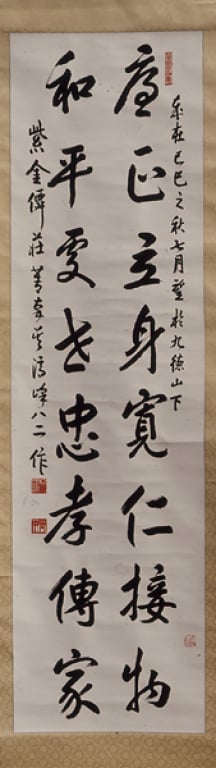 歲在己巳之秋七月望於九德山下
廉正立身寬仁接物
和平處世忠孝傳家
紫金 莊 峰八二作